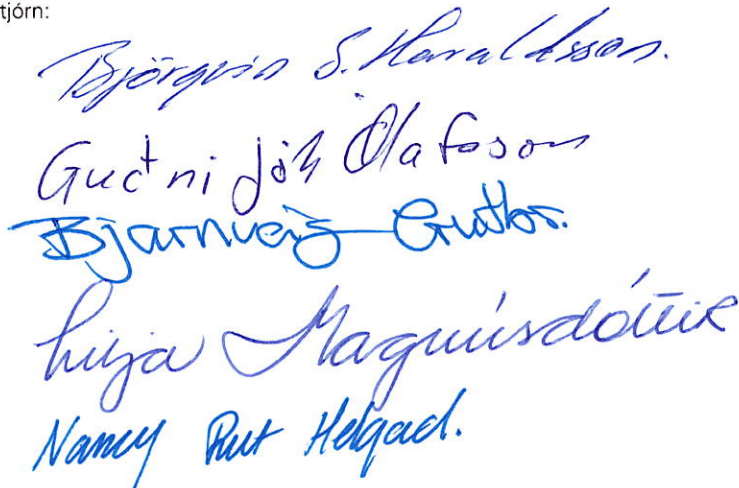 tjórn:
Björgvin S. Haraldsson.
Guðni Jóh Ólafsson
Bjarnveig Guðbr.
Lilja Magnúsdóttir
Nancy Rut Helgad.